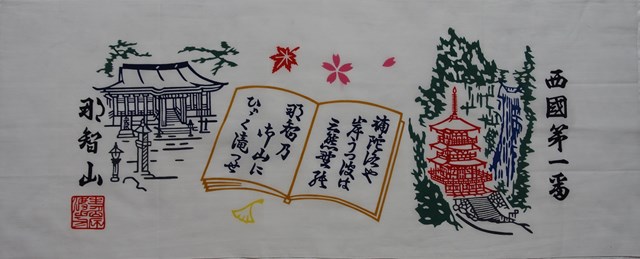 西國第一番
補陀洛や
岸うつ波は
三熊野の
那智乃
御山に
ひゞく滝つせ
那智山